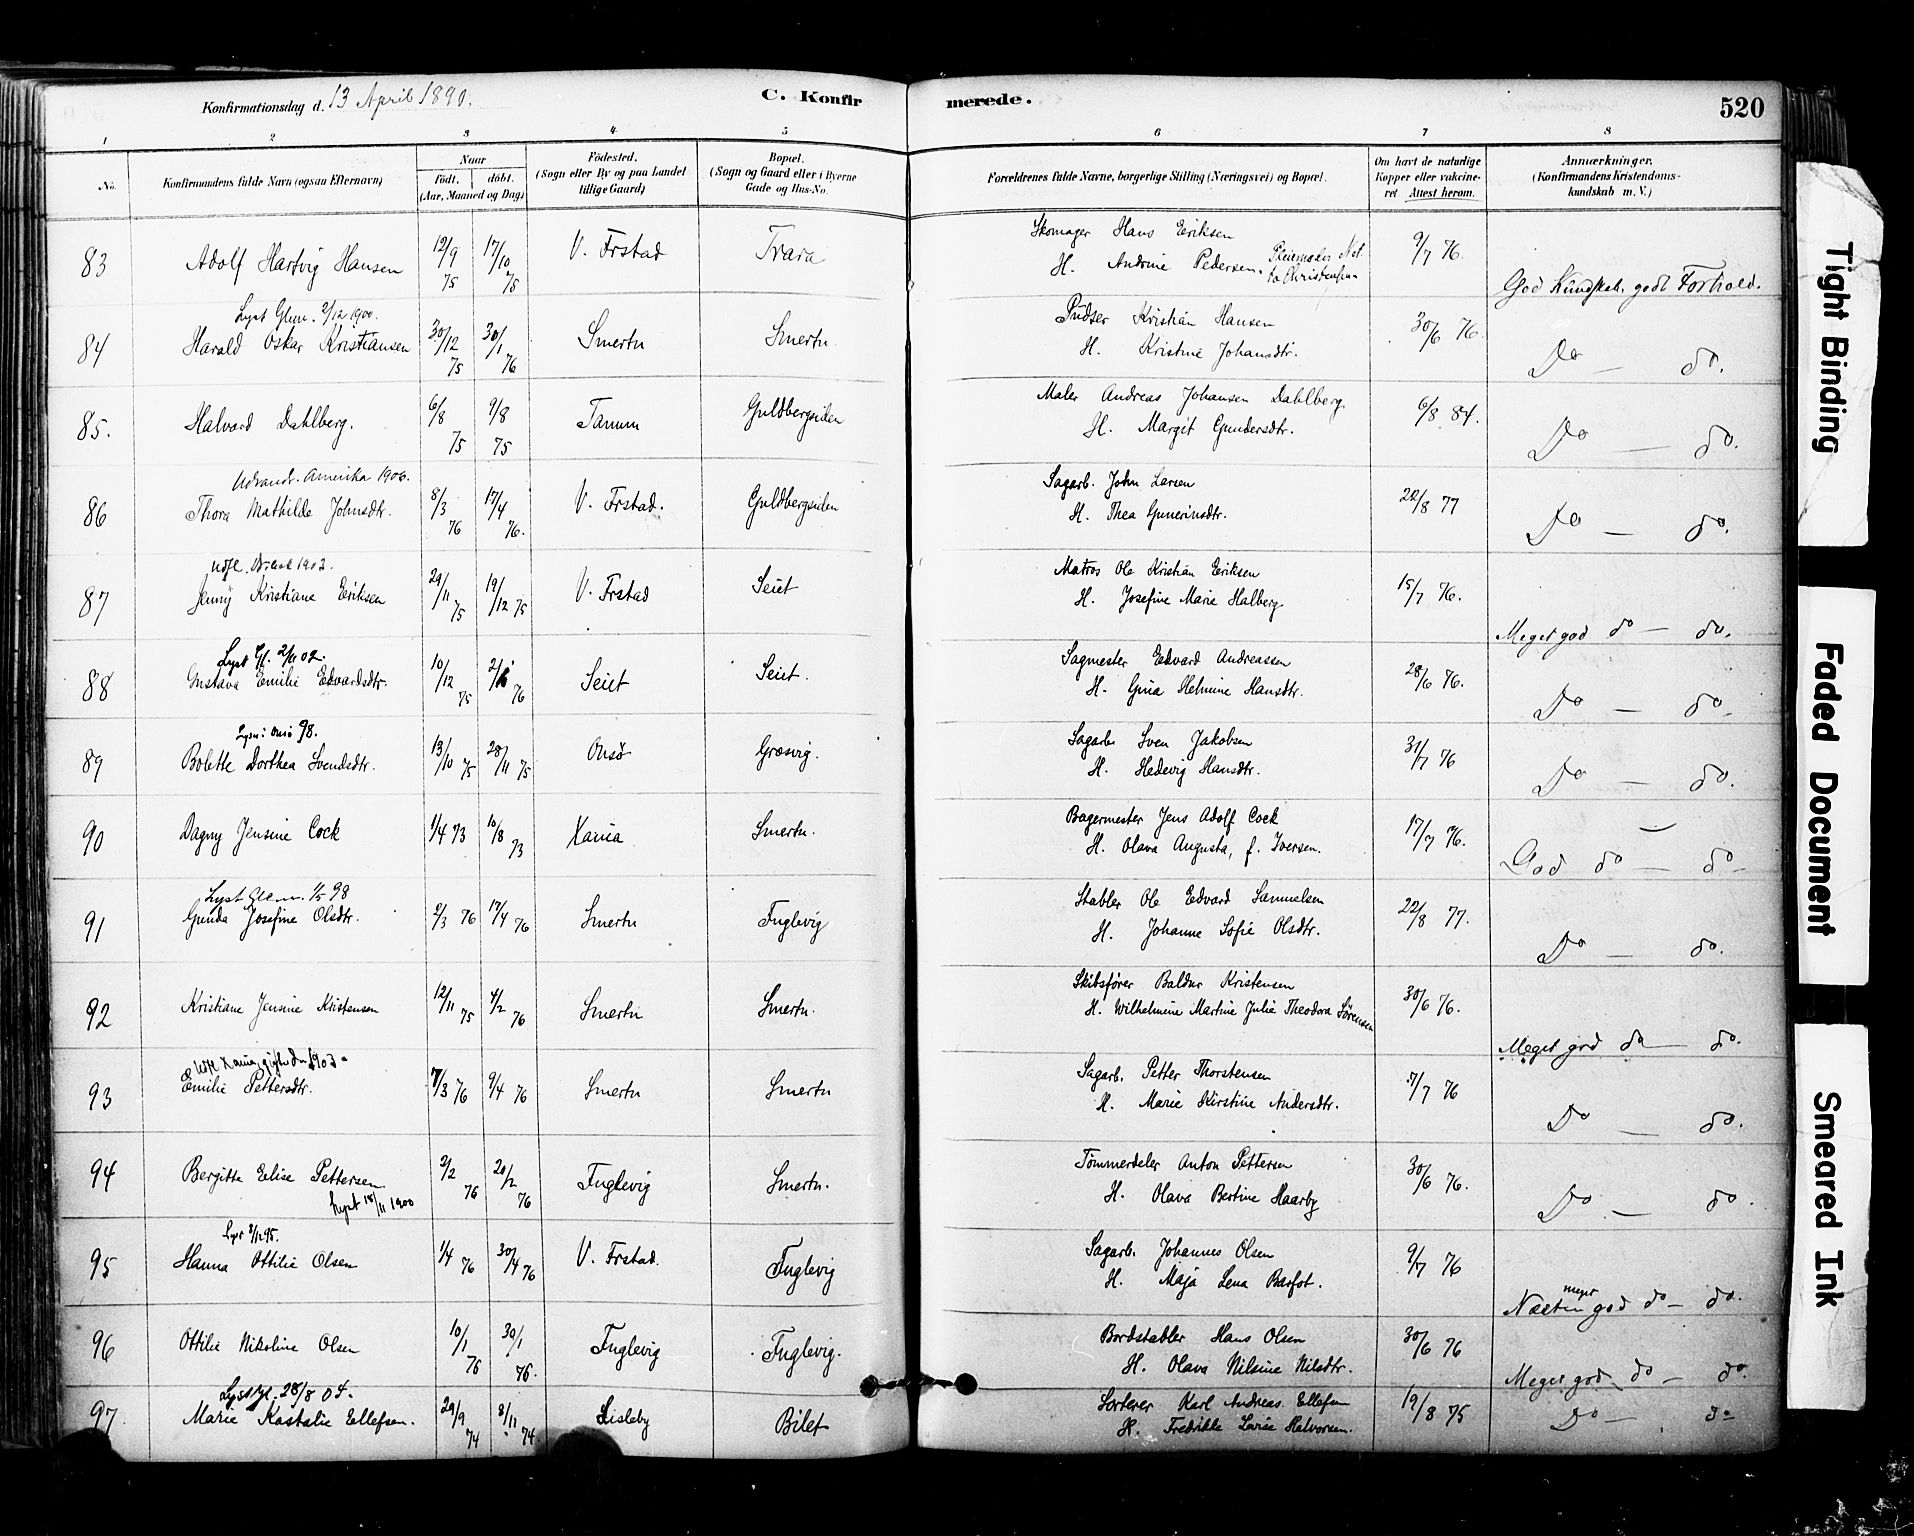 Konfirmationsdag d. 13 April 1890.
C. Konfir
merede.
520
1 2 3 4 5 6 7 8
No.
Konfirmandens fulde Navn (ogsaa Efternavn)
Naar
Födt. döbt.
(Aar, Maaned og Dag)
Födested.
(Sogn eller By og paa Landet
tillige Gaard)
Bopæl.
(Sogn og Gaard eller i Byerne
Gade og Hus-No.
Forældrenes fulde Navne, borgerlige Stilling (Næringsvei) og Bopæl.
Om havt de naturlige
Kopper eller vakcine-
ret Attest herom.
Anmærkninger.
(Konfirmandens Kristendoms-
kundskab m. V.)
83 Adolf Hartvig Hansen 12/9 75 17/10 75 V. Frstad Trara
Skomager Hans Eriksen
H. Andrine Pedersen. Pleiemoder
9/7 76.
God Kundskab. godt Forhold.
Lyst Glem. 2/12 1900.
84 Harald Oskar Kristiansen 30/12 75 30/1 76 Smertu Smertu
Pudser Kristian Hansen
H. Kristine Johansdtr.
30/6 76.
Do — do.
85. Halvard Dahlberg. 6/8 75 9/8 75 Tanum Guldbergsiden
Maler Andreas Johansen Dahlberg
H. Margit Gundersdtr.
6/8 84.
Do — do.
Udvandr. Amerika 1906.
86 Thora Mathilde Johnsdtr. 8/3 76 17/4 76. V. Frstad. Guldbergsiden
Sagarb. John Larsen
H. Thea Gunerinsdtr.
22/8 77
Do — do.
1902.
87 Jenny Kristiane Eriksen 29/11 75 19/12 75 V. Frstad Seiet
Matros Ole Kristian Eriksen
H. Josefine Marie Halberg
15/7 76.
Meget god do — do.
Lyst Gl. 2/11 02.
88 Gustava Emilie Edvardsdtr. 10/12 75 2/1 76 Seiet Seiet.
Sagmester Edvard Andreassen
H. Gina Helmine Hansdtr.
28/6 76.
Do — do.
Lysn: Onsö 98.
89 Bolette Dorthea Svendsdtr. 13/10 75 28/11 75 Onsö Græsvig.
Sagarb. Sven Jakobsen
H. Hedevig Hansdtr.
31/7 76
Do — do.
90 Dagny Jensine Cock 1/4 73 10/8 73 Xania Smertu.
Bagermester Jens Adolf Cock
H. Olava Augusta, f. Iversen.
17/7 76.
God do — do
Lyst Glem. 1/5 98
91 Gunda Josefine Olsdtr. 2/3 76 17/4 76 Smertu Fuglevig
Stabler Ole Edvard Samuelsen
H. Johanne Sofie Olsdtr.
22/8 77.
Do — do.
92 Kristiane Jensine Kristensen 12/11 75 4/2 76 Smertu Smertu.
Skibsfører Baldur Kristensen
H. Wilhelmine Martine Julie Theodora Sörensen
30/6 76.
Meget god do — do.
Xania 1903
93 Emilie Pettersdtr. 7/3 76 9/4 76 Smertu Smertu
Sagarb. Petter Thorstensen
H. Marie Kirstine Andersdtr.
7/7 76
Do — do.
94 Bergitte Elise Pettersen 2/2 76 20/2 76 Fuglevig Smertu.
Lyst 18/11 1900
Tömmerdeler Anton Pettersen
H. Olava Bertine Haarby
30/6 76.
Do — do.
Lyst 8/12 95.
95 Hanna Ottilie Olsen 1/4 76 30/4 76 V. Frstad. Fuglevig
Sagarb. Johannes Olsen
H. Maja Lena Barfot.
9/7 76
meget
Næsten god do — do.
96 Ottilie Nikoline Olsen 10/1 76 30/1 76. Fuglevig Fuglevig.
Bordstabler Hans Olsen
H. Olava Nilsine Nilsdtr.
30/6 76
Meget god do — do.
Lyst Gl. 28/8 04.
97. Marie Kastalie Ellefsen. 29/9 74 8/11 74. Lisleby Bilet
Sorterer Karl Andreas Ellefsen
H. Fredrikke Lovise Halvorsen.
19/8 75
Do — do
Tight Binding
Faded Document
Smeared Ink